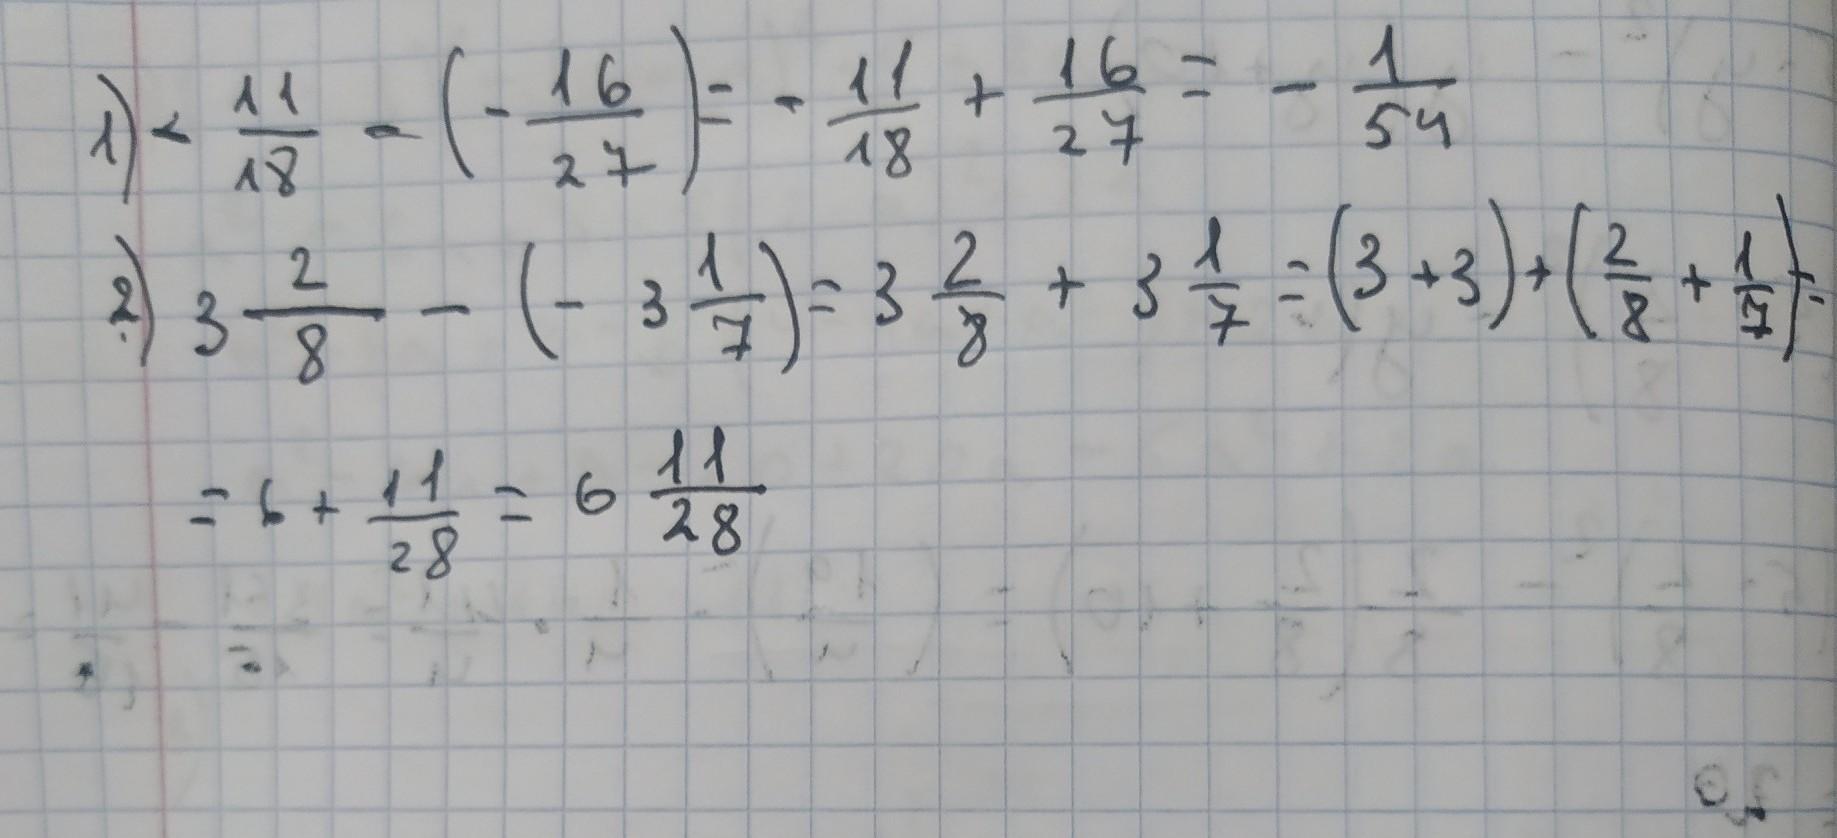 1) - 11/18 - (- 16/27) = - 11/18 + 16/27 = - 1/54
2) 3 2/8 - (- 3 1/7) = 3 2/8 + 3 1/7 = (3 + 3) + (2/8 + 1/7) =
= 6 + 11/28 = 6 11/28